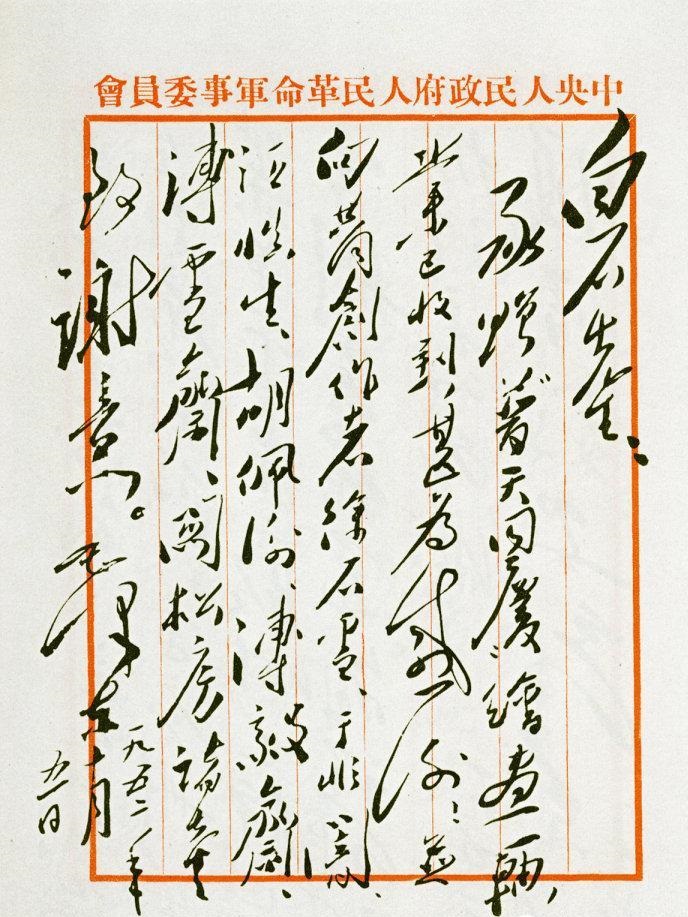 中央人民政府人民革命軍事委員會
白石先生：
承贈普天同慶繪畫一軸，
業已收到，甚為感谢！並
向共同創作者徐石雪、于非闇、
汪慎生、胡佩衡、溥毅齋、
溥雪齋、關松房諸先生
致謝意。
毛澤东
一九五二年
十月
五日